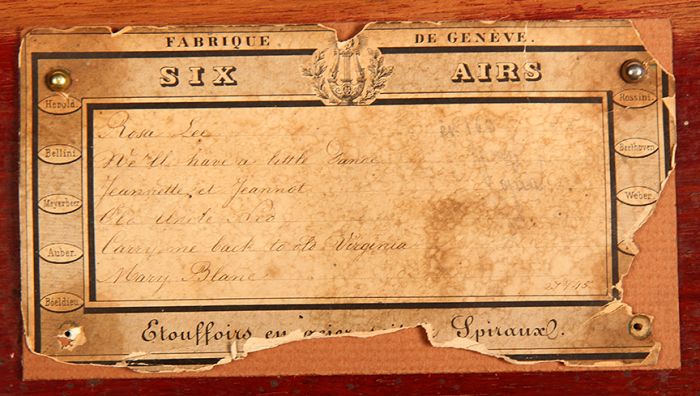 FABRIQUE DE GENÈVE.
SIX AIRS
Herold.
Bellini
Meyerbeer
Auber.
Boeldieu
Rosa Lee
We'll have a little Dance
Jeannette et Jeannot
Old Uncle Ned
Carry me back to old Virginia
Mary Blane
Rossini.
Beethoven
Weber.
Etouffoirs en acier Spiraux.